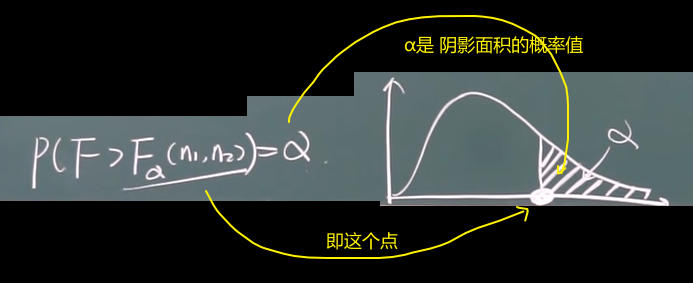 α是 阴影面积的概率值
P(F>Fα(n₁,n₂))=α.
α
即这个点